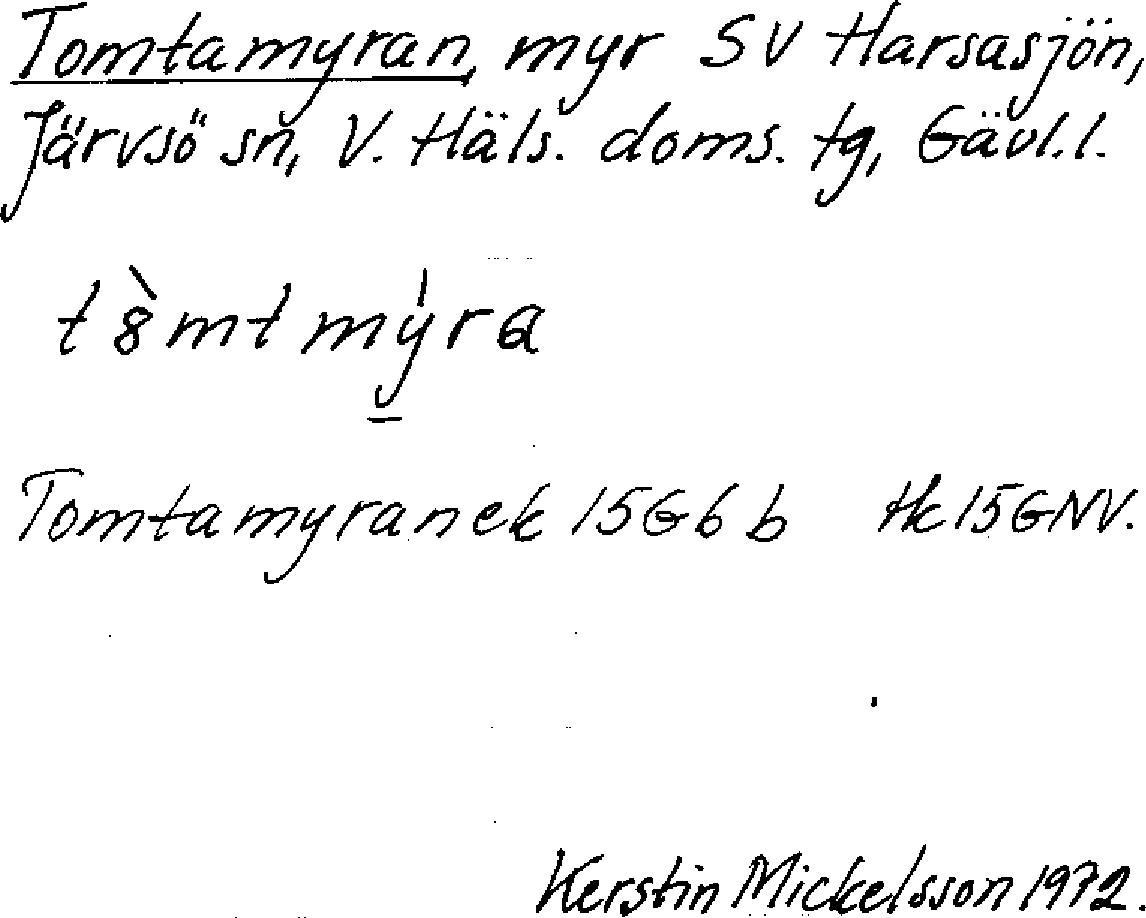 Tomtamyran, myr SV Harsasjön,
Järvsö sn, V. Häls. doms. tg, Gävl.l.
t8̀mtmy̠̍ra
Tomtamyran ek 15G6b Hk15GNV.
Kerstin Mickelsson 1972.